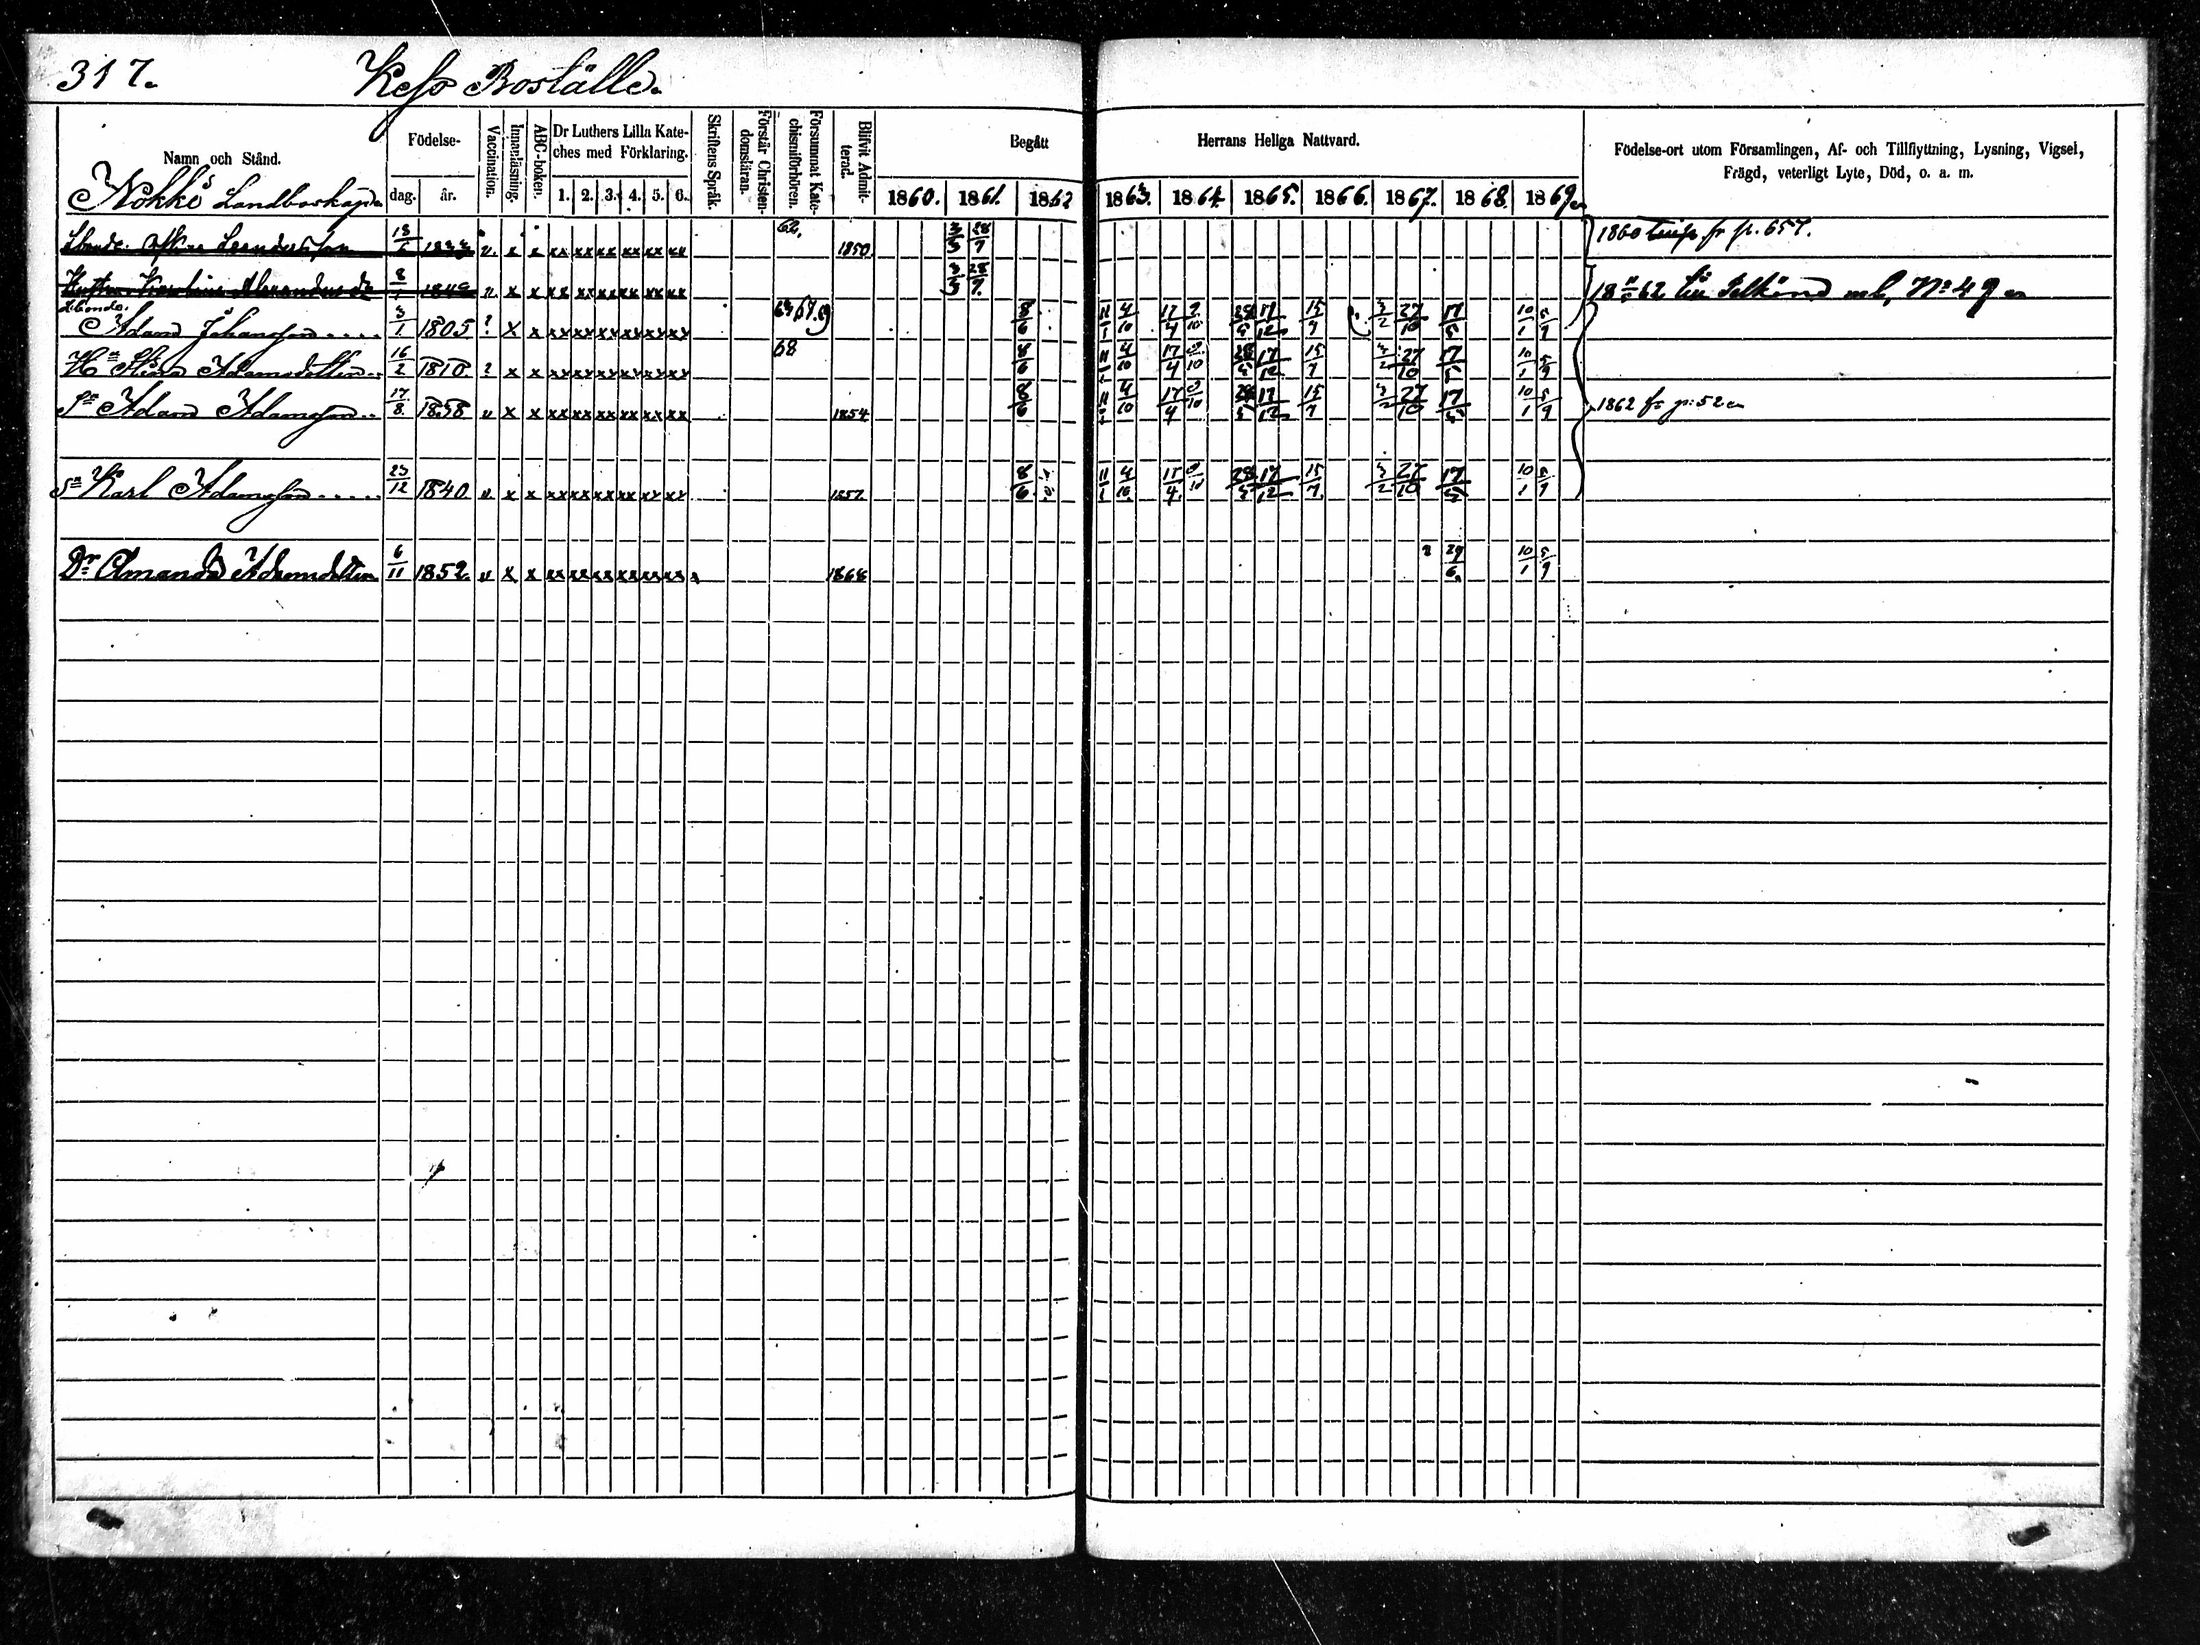 317.
Keso Boställe.
Namn och Stånd.
Nokko Landboskap
Födelse-
dag. år.
Vaccination.
Innanläsning.
ABC-boken.
Dr Luthers Lilla Kate-
ches med Förklaring.
1. 2. 3. 4. 5. 6.
Skriftens Språk.
Förstår Christen-
domsläran.
Försummat Kate-
chismiförhören.
Blifvit Admit-
terad.
Begått Herrans Heliga Nattvard.
1860. 1861. 1862 1863. 1864. 1865. 1866. 1867. 1868. 1869.
Födelse-ort utom Församlingen, Af- och Tillflyttning, Lysning, Vigsel,
Frägd, veterligt Lyte, Död, o. a. m.
Leandersson 1833 v. x x xx xx xx xx xx xx 62. 1850. 3/3 28/7 1860 fr p. 657.
Alexandersdr 8/1 v. x x xx xx xx xx xx xx 3/3 28/7. 1862 till Pelkäne mb, No 49
Lbonde.
Adam Johansson 3/1 1805 ? x x xx xx xx xx xx xx 8/6 4/10 17/4 17/12 15/7 3/2 27/10 17/5 10/1 5/9
H Stina Adamsdotter 16/2 1810. ? x x xx xx xx xx xx xx 68 8/6 4/10 17/4 17/12 15/7 3/2 27/10 17/5 10/1 5/9
Sn Adam Adamsson 17/8 1838 v x x xx xx xx xx xx xx 1854 8/6 4/10 17/4 17/12 15/7 3/2 27/10 17/5 10/1 5/9 1862 fr p: 52
Sn Karl Adamsson 23/12 1840 v x x xx xx xx xx xx xx 1857 8/6 4/10 17/12 15/7 3/2 27/10 17/5 10/1 5/9
Dr Amanda Adamsdotter 6/11 1852. v x x xx xx xx xx xx xx 1868 29/6. 10/1 5/9